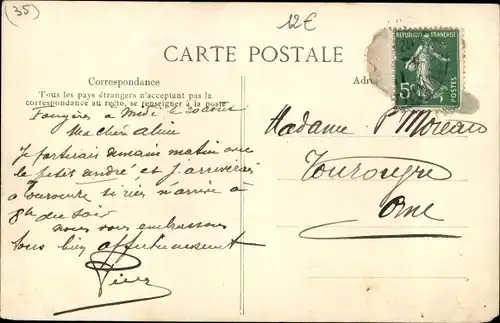 (35)
12€
CARTE POSTALE
RÉPUBLIQUE FRANÇAISE
5c
POSTES
Correspondance
Adre
Tous les pays étrangers n'acceptant pas la
correspondance au recto, se renseigner à la poste
Fougères le 20 août
Ma chère
Je partirais demain matin avec
le petit andré et j'arriverai
à si rien n'arrive à
8h du soir
nous vous embrassons
tous bien affectueusement
Madame P Moreau
Orne